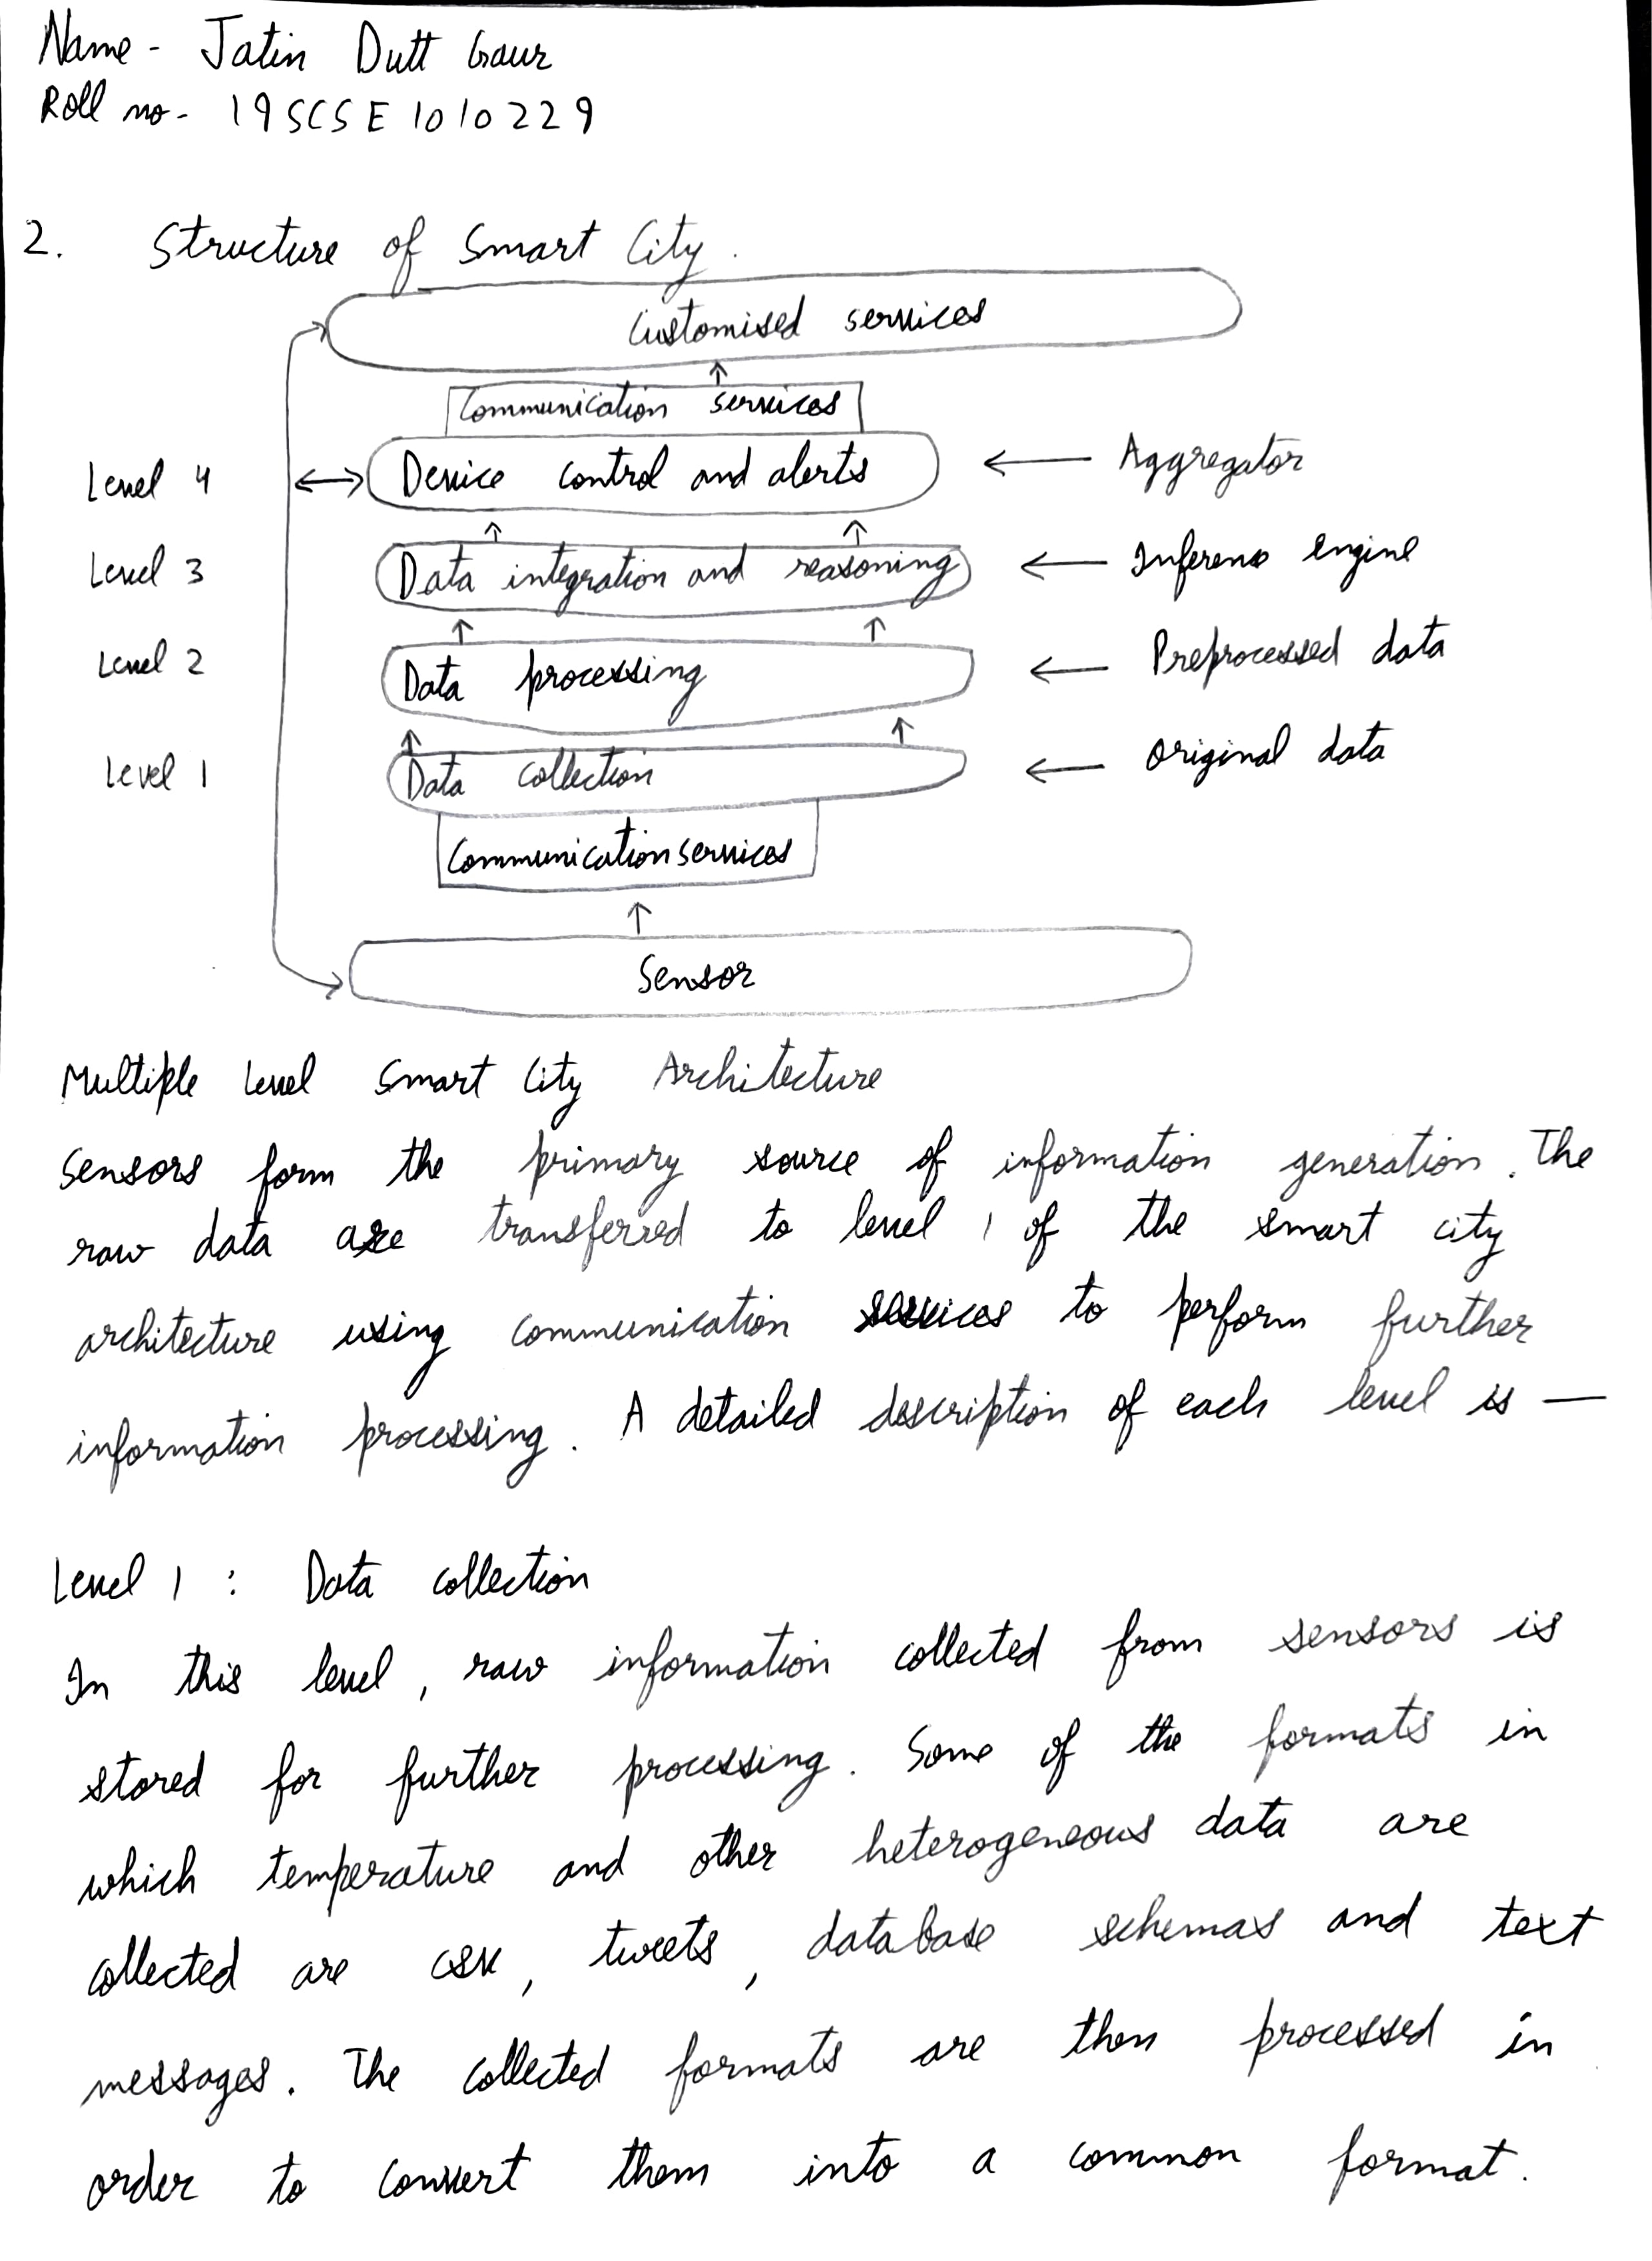 Name - Jatin Dutt Gaur
Roll no- 19SCSE1010229
2. Structure of Smart City.
Customised services
Communication services
Level 4 Device control and alerts Aggregator
Level 3 Data integration and reasoning Inference engine
Level 2 Data processing Preprocessed data
Level 1 Data collection Original data
Communication services
Sensor
Multiple Level Smart City Architecture
Sensors form the primary source of information generation. The
raw data are transferred to level 1 of the smart city
architecture using communication services to perform further
information processing. A detailed description of each level is —
Level 1 : Data collection
In this level, raw information collected from sensors is
stored for further processing. Some of the formats in
which temperature and other heterogeneous data are
collected are csv, tweets, database schemas and text
messages. The collected formats are then processed in
order to convert them into a common format.